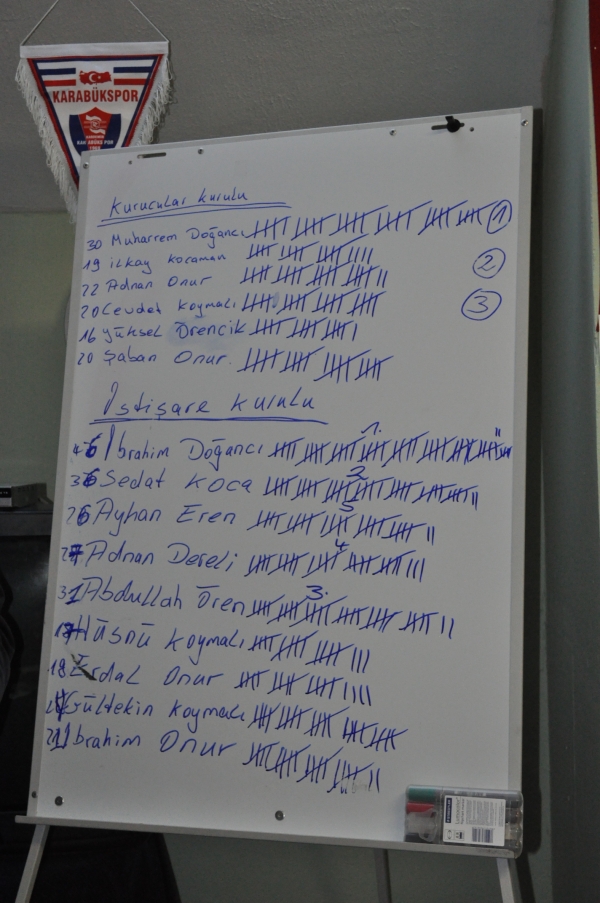 KARABÜKSPOR
Kurucular kurulu
30 Muharrem Doğancı 1
19 ilkay koraman
22 Adnan Onur 2
20 Cevdet koymalı 3
16 yüksel Örencik
20 Şaban Onur.
İstişare kurulu
46 İbrahim Doğancı 1.
36 Sedat Koca 2
26 Ayhan Eren 5
27 Adnan Dereli 4
31 Abdullah Ören 3.
17 Hüsnü Koymalı
18 Erdal Onur
Gültekin koymalı
21 İbrahim Onur
STAEDTLER